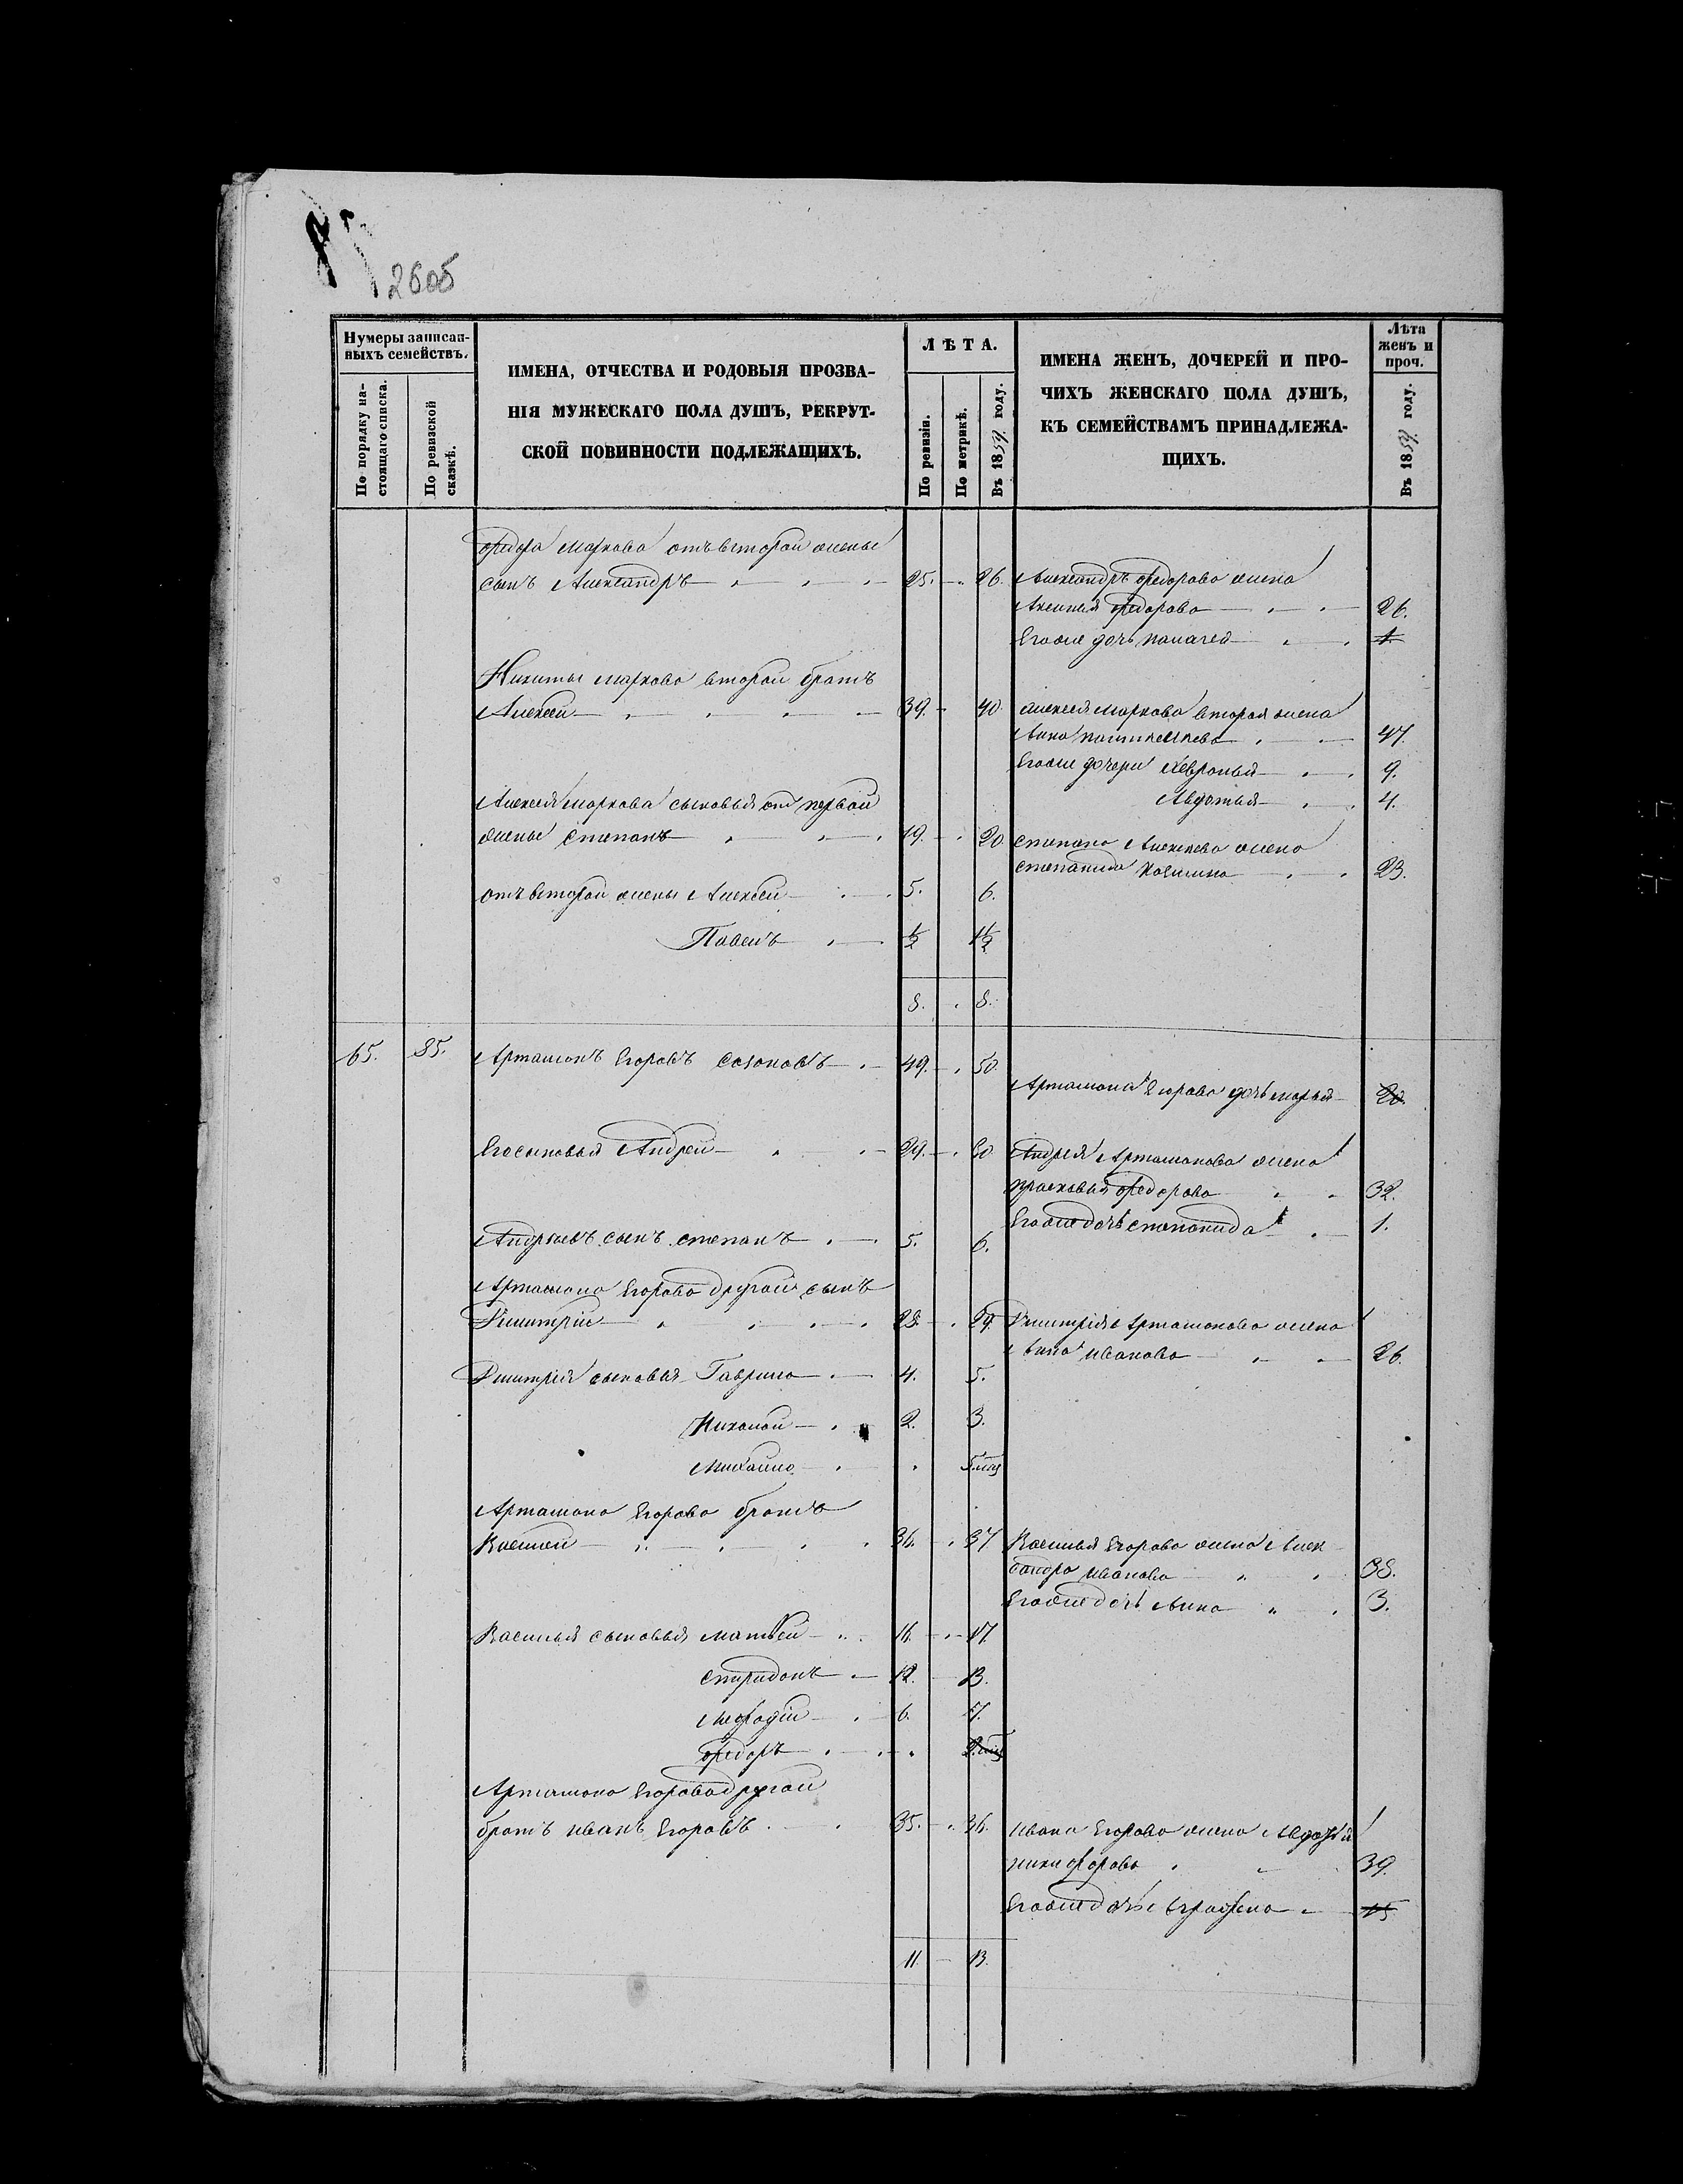 2605
Нумеры записан-
ныхъ семействъ.
По порядку на-
стоящаго списка.
По ревизской
сказкѣ.
ИМЕНА, ОТЧЕСТВА И РОДОВЫЯ ПРОЗВА-
НІЯ МУЖЕСКАГО ПОЛА ДУШЪ, РЕКРУТ-
СКОЙ ПОВИННОСТИ ПОДЛЕЖАЩИХЪ.
ЛѢТА.
По ревизіи.
По метрикѣ.
Въ 1859 году.
ИМЕНА ЖЕНЪ, ДОЧЕРЕЙ И ПРО-
ЧИХЪ ЖЕНСКАГО ПОЛА ДУШЪ,
КЪ СЕМЕЙСТВАМЪ ПРИНАДЛЕЖА-
ЩИХЪ.
Лѣта
женъ и
проч.
Въ 1859 году.
Федора Маркова отъ второй жены
сынъ Александръ 25. 26. Александръ Федорова жена
Аксинья Федорова 26.
Егоже дочь 1.
Никиты Маркова второй братъ
Алексей 39. 40. Алексея Маркова вторая жена
Анна 47.
Егоже дочери Хевронья 9.
Авдотья 4.
Алексея Маркова сыновья отъ первой
жены Степанъ 19. 20. Степана Алексеева жена
Степанида 23.
отъ второй жены Алексей 5. 6.
Павелъ ½ 1½
8. 8.
65. 85. Артамонъ Егоровъ Сазоновъ 49. 50.
Артамона Егорова дочь Марья 20.
Его сыновья Андрей 29. 30 Андрея Артамонова жена
Прасковья Федорова 32.
Егоже дочь Степанида 1.
Андреевъ сынъ Степанъ 5. 6.
Артамона Егорова другой сынъ
Дмитрій 28. 29. Дмитрія Артамонова жена
Анна Иванова 26.
Дмитрія сыновья Гаврило 4. 5.
Николай 2. 3.
Михайло 5. мц
Артамона Егорова братъ
Василей 36. 37 Василья Егорова жена Алек
сандра Иванова 38.
Егоже дочь Анна 3.
Василья сыновья Матвей 16. 17.
Спиридонъ 12. 13.
Мефодій 6. 7.
Федоръ 2. мц
Артамона Егорова другой
братъ Иванъ Егоровъ 35. 36. Ивана Егорова жена Авдотья
Никифорова 39.
Егоже дочь Аграфена 15
11. 13.